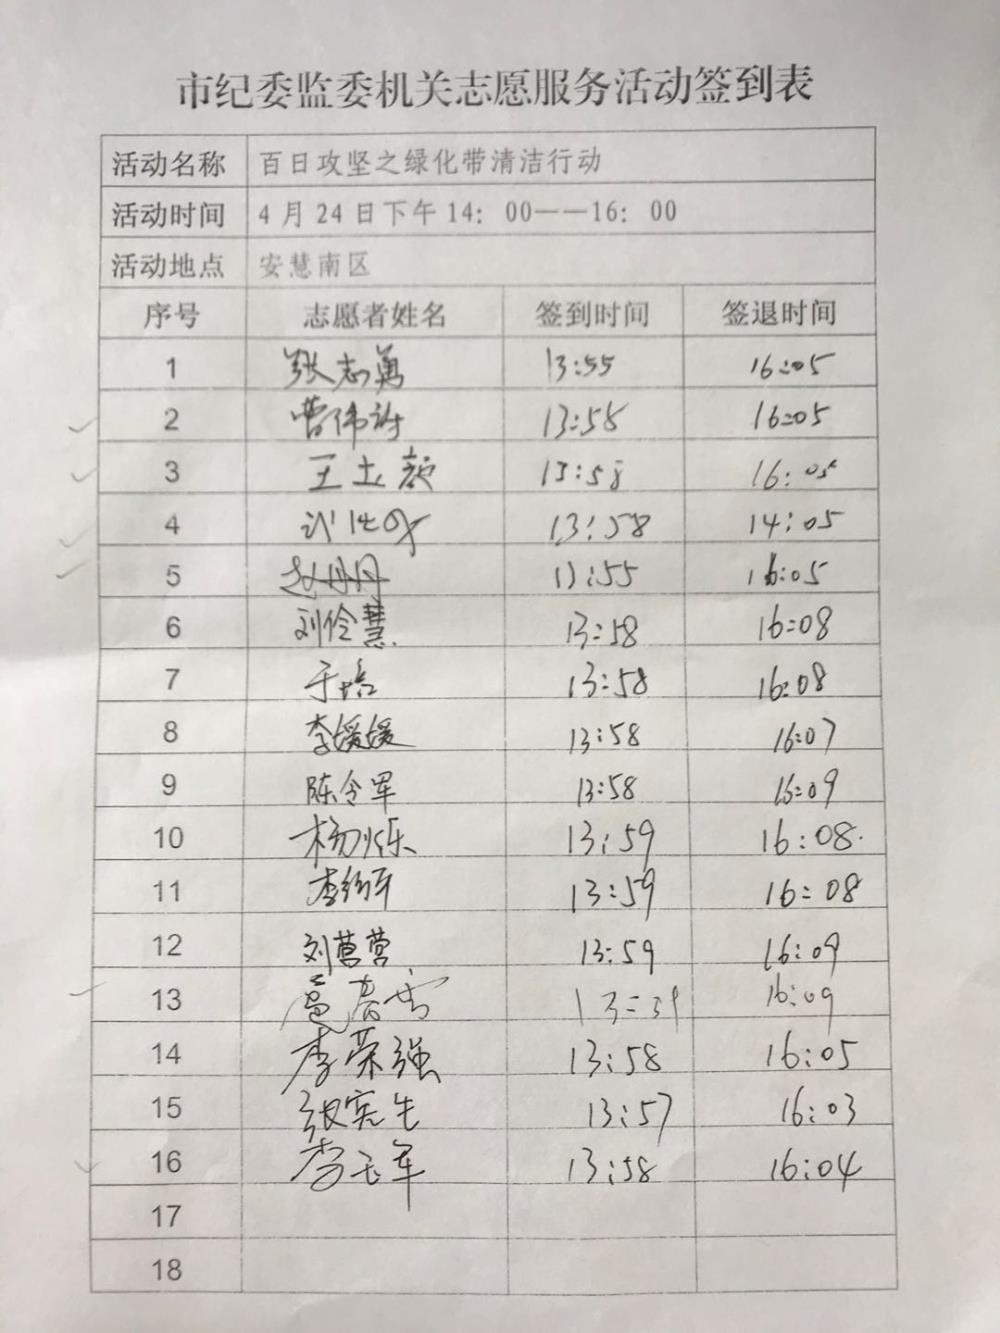 市纪委监委机关志愿服务活动签到表
活动名称 百日攻坚之绿化带清洁行动
活动时间 4月24日下午14：00——16：00
活动地点 安慧南区
序号 志愿者姓名 签到时间 签退时间
1 张志勇 13:55 16:05
2 曹伟 13:58 16:05
3 王 13:58 16:05
4 13:58 14:05
5 赵丹丹 13:55 16:05
6 刘伶慧 13:58 16:08
7 于培 13:58 16:08
8 李媛媛 13:58 16:07
9 陈令军 13:58 16:09
10 杨烁 13:59 16:08
11 李 军 13:59 16:08
12 刘营营 13:59 16:09
13 16:09
14 李荣强 13:58 16:05
15 张宪生 13:57 16:03
16 李玉军 13:58 16:04
17
18